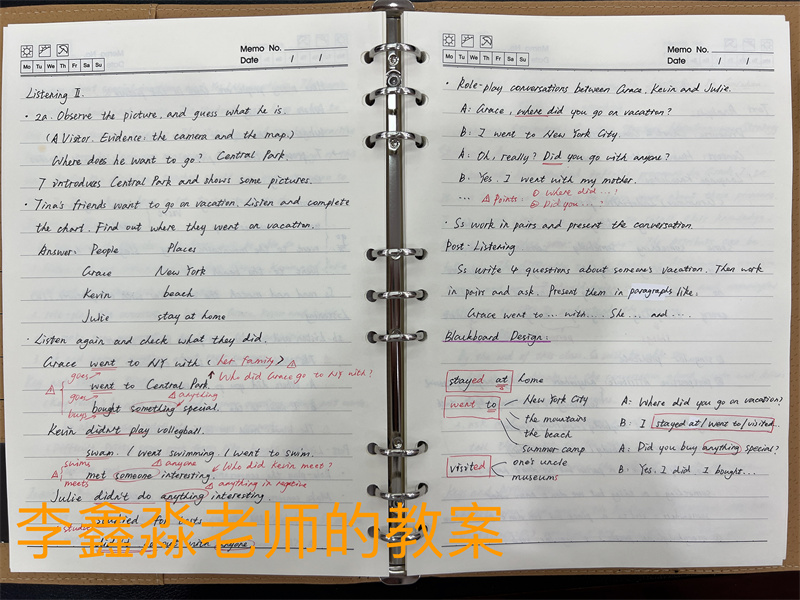 Memo No.
Mo Tu We Th Fr Sa Su
Date / /
Listening II.
· 2a. Observe the picture, and guess what he is.
(A Visitor. Evidence: the camera and the map.)
Where does he want to go? Central Park.
T introduces Central Park and shows some pictures.
· Tina's friends went to go on vacation. Listen and complete
the chart. Find out where they went on vacation.
Answer: People Places
Grace New York
Kevin beach
Julie stay at home
· Listen again and check what they did.
Grace went to NY with (her family)
goes Who did Grace go to NY with?
went to Central Park.
goes anything
bought something special.
buys
Kevin didn't play volleyball.
swam. / went swimming. / went to swim.
swims anyone Who did Kevin meet?
met someone interesting.
meets anything in negative
Julie didn't do anything interesting.
studied for tests
anyone
李鑫淼老师的教案
Memo No.
Mo Tu We Th Fr Sa Su
Date / /
· Role-play conversations between Grace, Kevin and Julie.
A: Grace, where did you go on vacation?
B: I went to New York City.
A: Oh, really? Did you go with anyone?
B: Yes. I went with my mother.
... Points: ① Where did ...?
② Did you ...?
· Ss work in pairs and present the conversation.
Post-Listening
Ss write 4 questions about someone's vacation. Then work
in pairs and ask. Present them in paragraphs like:
Grace went to ... with .... She ... and ....
Blackboard Design:
stayed at home
went to New York City
the mountains
the beach
summer camp
visited one's uncle
museums
A: Where did you go on vacation?
B: I stayed at / went to / visited..
A: Did you buy anything special?
B: Yes. I did I bought...